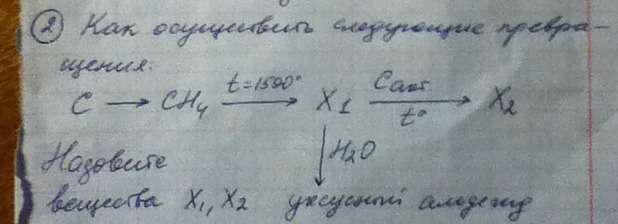 2 Как осуществить следующие превра-
щения:
C → CH4 t=1500° → X1 Cакт t° → X2
↓ H2O
Назовите
вещества X1, X2 уксусный альдегид